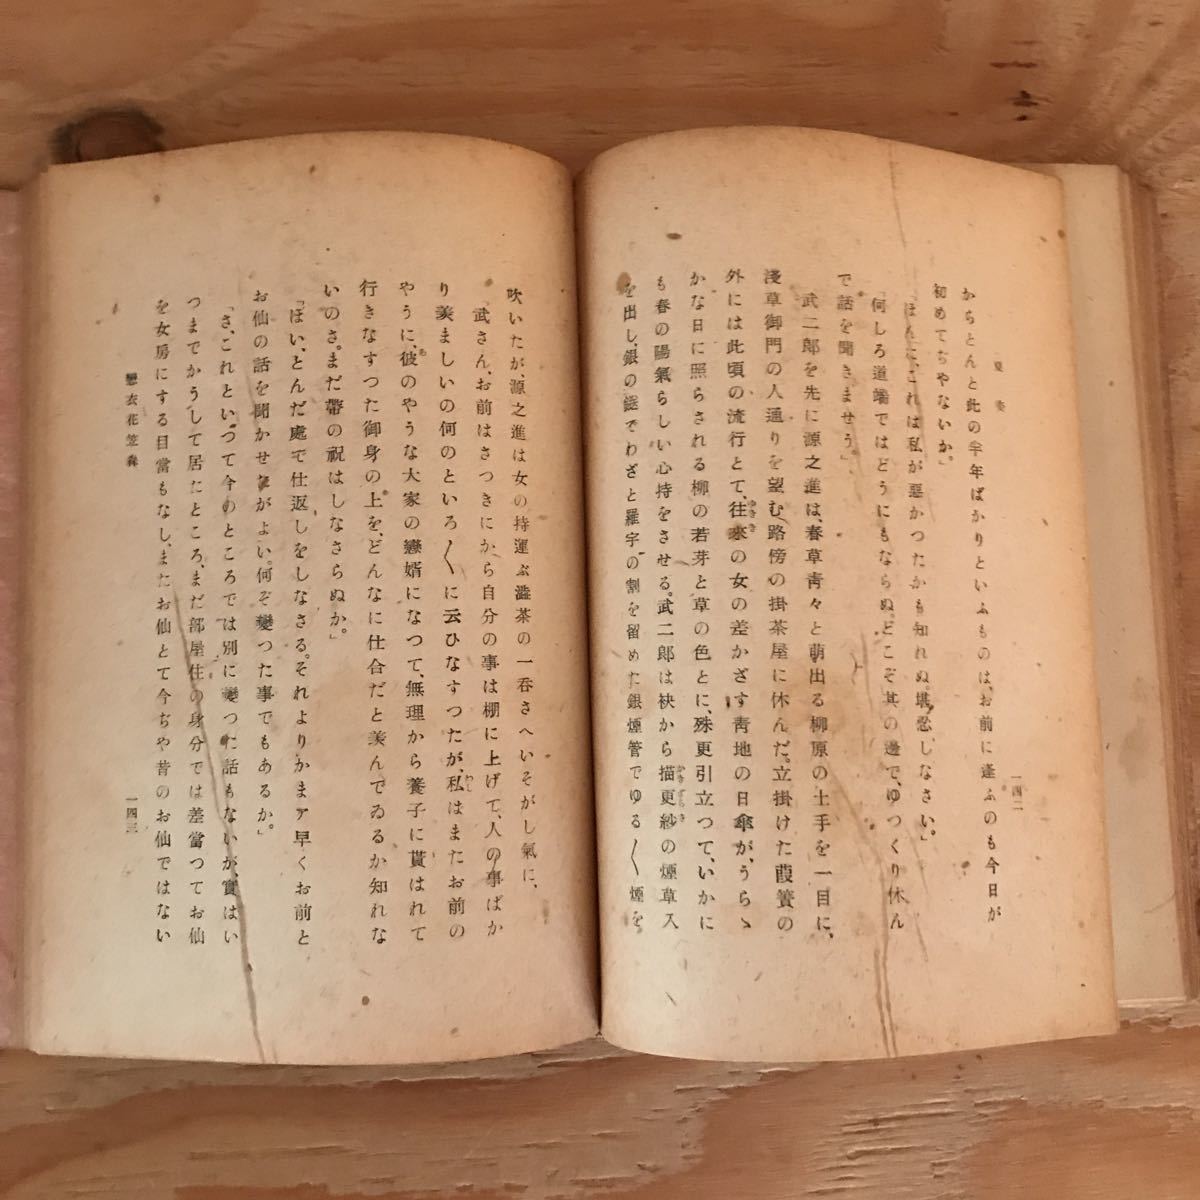 夏姿
一四二
からとんと此の半年ばかりといふものは、お前に逢ふのも今日が
初めてぢやないか。」
「ほんに、これは私が惡かつたかも知れぬ。堪忍しなさい。」
「何しろ道端ではどうにもならぬ。どこぞ其の邊で、ゆつくり休ん
で話を聞きませう。」
武二郎を先に源之進は、春草靑々と萌出る柳原の土手を一目に、
淺草御門の人通りを望む路傍の掛茶屋に休んだ。立掛けた葭簀の
外には此頃の流行とて、往來の女の差かざす靑地の日傘が、うらゝ
かな日に照らされる柳の若芽と草の色とに、殊更引立つて、いかに
も春の陽氣らしい心持をさせる。武二郎は袂から描更紗の煙草入
を出し、銀の鎹でわざと羅宇の割を留めた銀煙管でゆる〱煙を
吹いたが、源之進は女の持運ぶ澁茶の一呑さへいそがし氣に、
「武さん、お前はさつきにから自分の事は棚に上げて、人の事ばか
り羨ましいの何のといろ〱に云ひなすつたが、私はまたお前の
やうに、彼のやうな大家の戀婿になつて、無理から養子に貰はれて
行きなすつた御身の上を、どんなに仕合だと羨んでゐるか知れな
いのさ。まだ帶の祝はしなさらぬか。」
「ほい、とんだ處で仕返しをしなさる。それよりかまア早くお前と
お仙の話を聞かせるがよい。何ぞ變つた事でもあるか。」
「さ、これといつて今のところでは別に變つた話もないが、實はい
つまでかうして居たところ、まだ部屋住の身分では差當つてお仙
を女房にする目當もなし、またお仙とて今ぢや昔のお仙ではない
戀衣花笠森
一四三